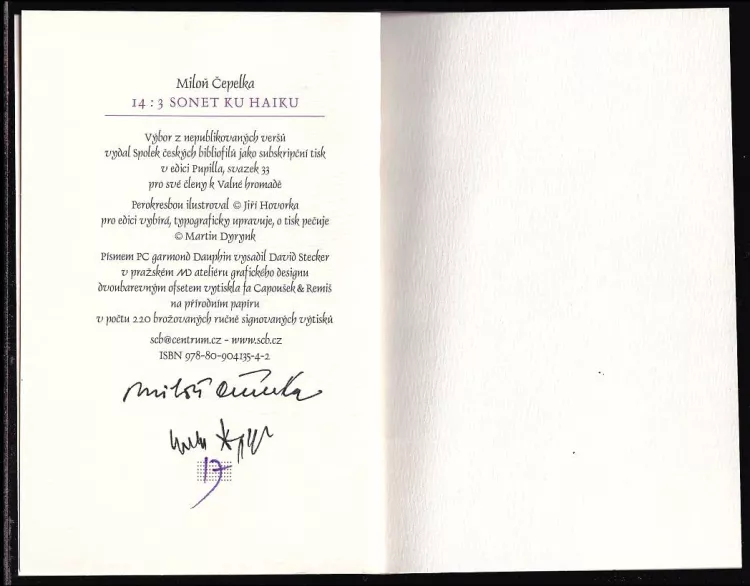 Miloň Čepelka
14 : 3 SONET KU HAIKU
Výbor z nepublikovaných veršů
vydal Spolek českých bibliofilů jako subskripční tisk
v edici Pupilla, svazek 33
pro své členy k Valné hromadě
Perokresbou ilustroval © Jiří Hovorka
pro edici vybírá, typograficky upravuje, o tisk pečuje
© Martin Dyrynk
Písmem PC garmond Dauphin vysadil David Stecker
v pražském MD ateliéru grafického designu
dvoubarevným ofsetem vytiskla fa Capoušek & Remiš
na přírodním papíru
v počtu 220 brožovaných ručně signovaných výtisků
scb@centrum.cz - www.scb.cz
ISBN 978-80-904135-4-2
Miloň Čepelka
17